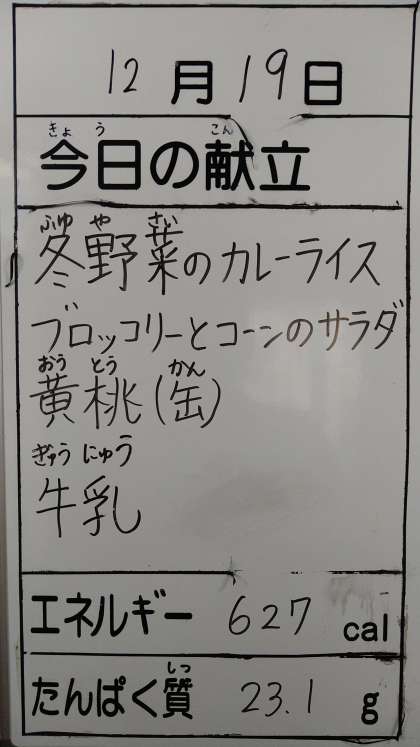 12月19日
きょう こん
今日の献立
ふゆ や さい
冬野菜のカレーライス
ブロッコリーとコーンのサラダ
おう とう かん
黄桃(缶)
ぎゅう にゅう
牛乳
エネルギー 627 cal
しつ
たんぱく質 23.1 g